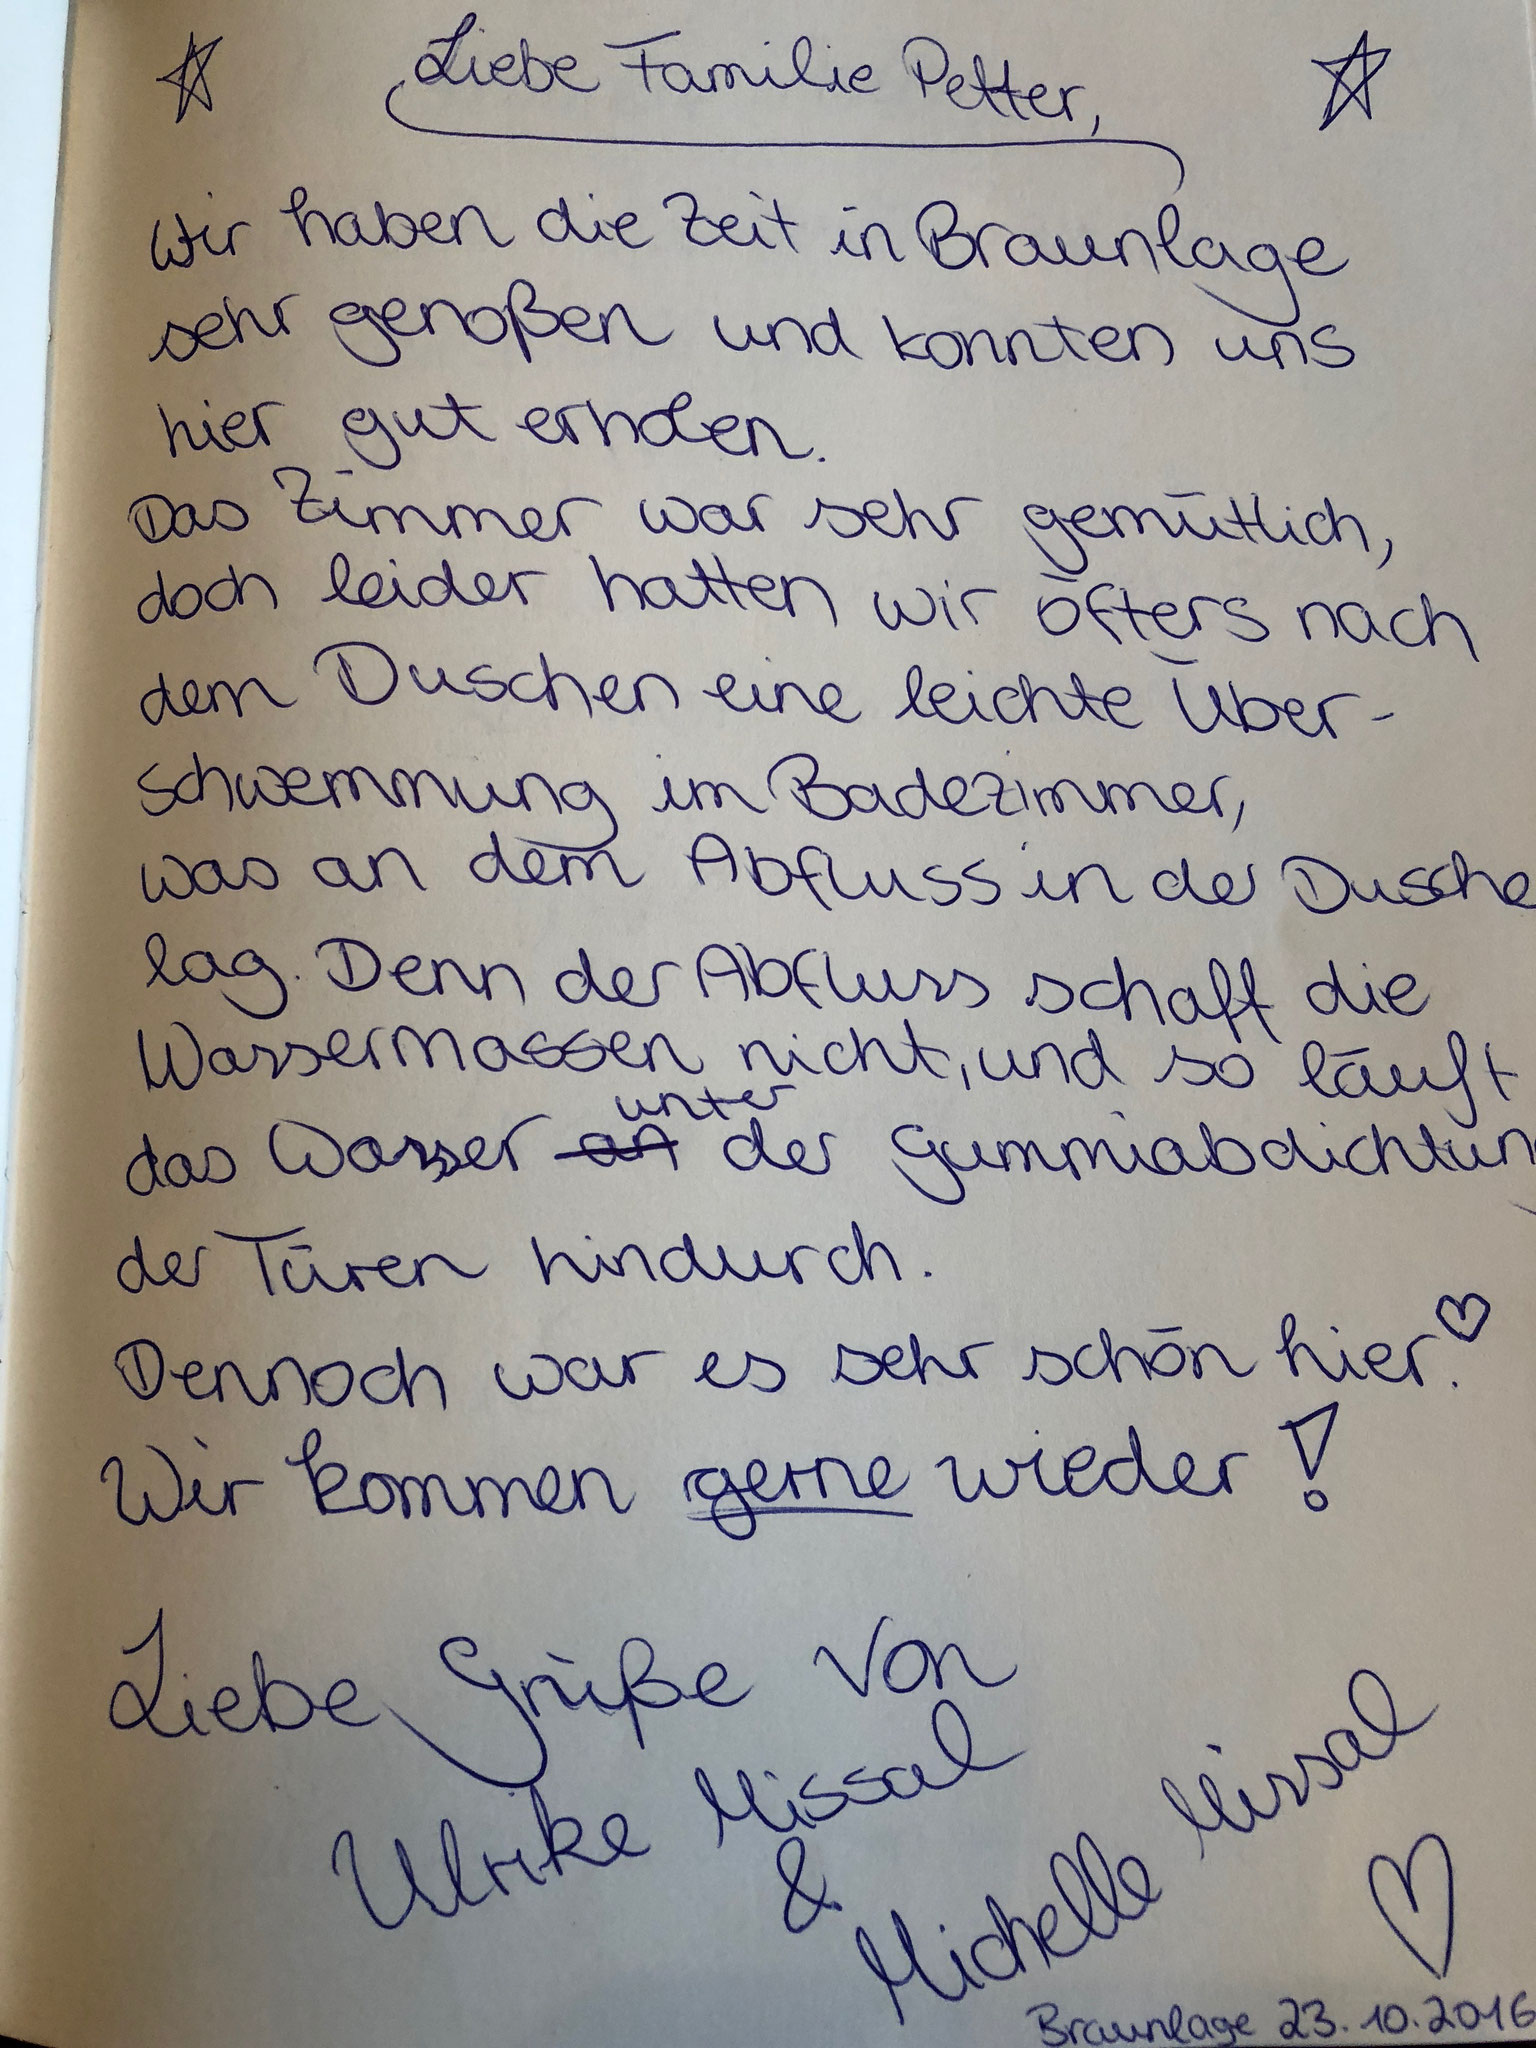 Liebe Familie Petter,
Wir haben die Zeit in Braunlage
sehr genoßen und konnten uns
hier gut erholen.
Das Zimmer war sehr gemütlich,
doch leider hatten wir öfters nach
dem Duschen eine leichte Über-
schwemmung im Badezimmer,
was an dem Abfluss in der Dusche
lag. Denn der Abfluss schaft die
Wassermassen nicht, und so läuft
unter
das Wasser an der Gummiabdichtung
der Türen hindurch.
Dennoch war es sehr schön hier.♡
Wir kommen gerne wieder!
Liebe Grüße von
Ulrike Missal
&
Michelle Missal
♡
Braunlage 23.10.2016